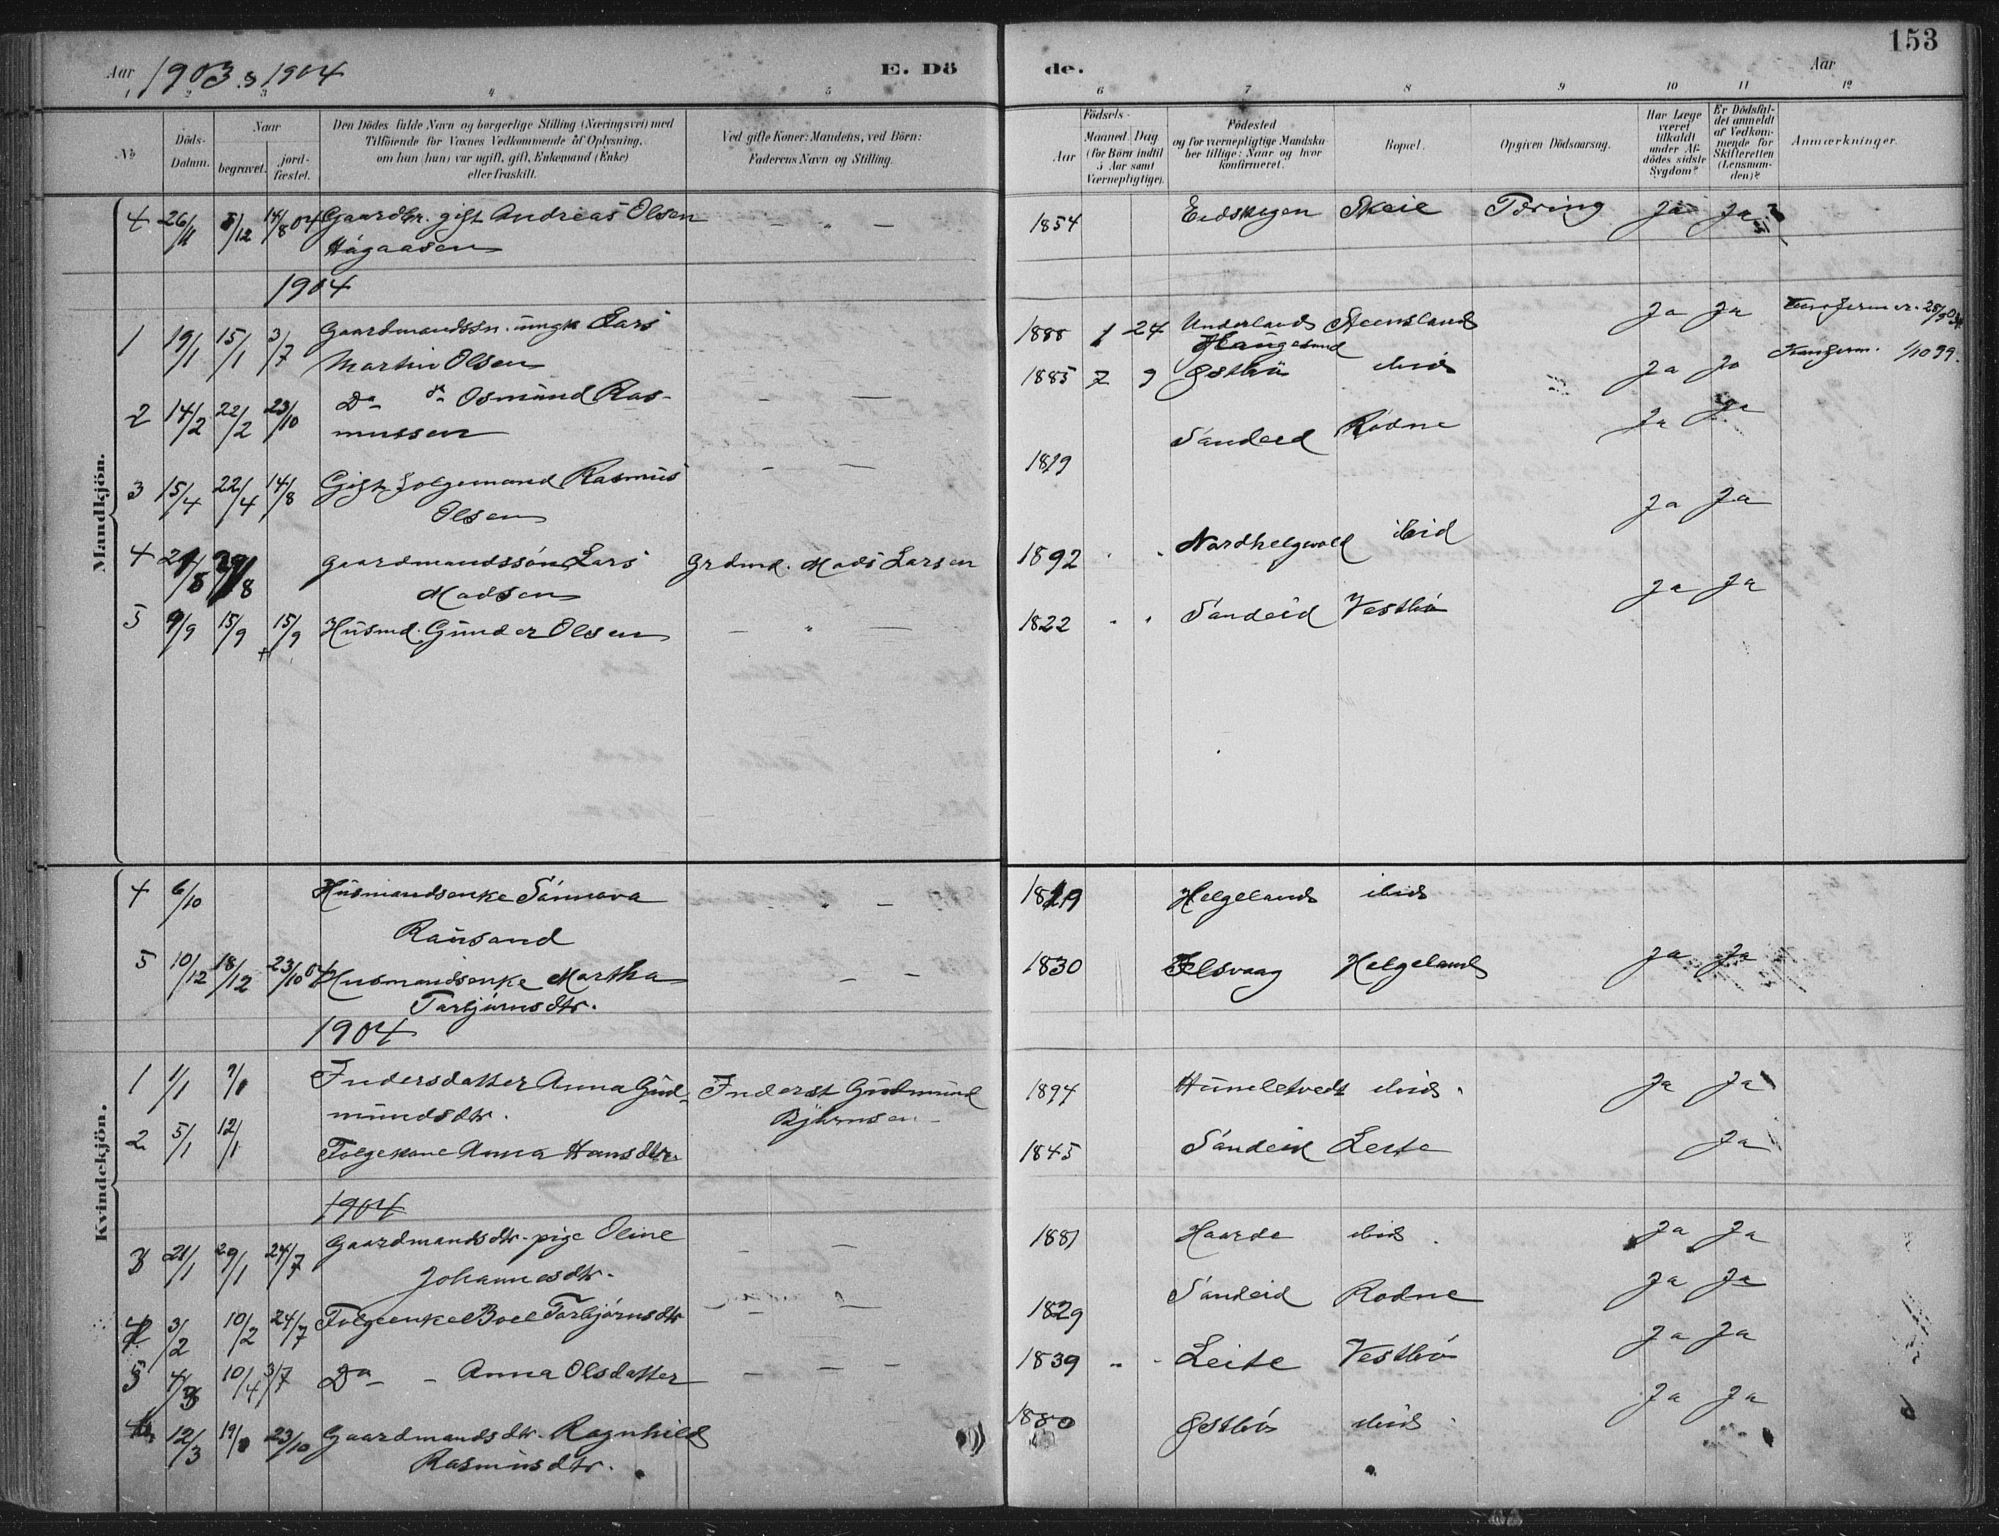 153
Aar 1903 & 1904 E. Dö de. Aar
1 2 3 4 5 6 7 8 9 10 11 12
№ Döds-Datum. Naar begravet. jord-fæstet. Den Dödes fulde Navn og borgerlige Stilling (Næringsvei) med Tilföiende for Voxnes Vedkommende af Oplysning, om han (hun) var ugift, gift, Enkemand (Enke) eller fraskilt. Ved gifte Koner: Mandens, ved Börn: Faderens Navn og Stilling. Födsels- Aar Maaned Dag (for Börn indtil 5 Aar samt Værnepligtige). Födested og for værnepligtige Mandskaber tillige: Naar og hvor konfirmeret. Bopæl. Opgiven Dödsaarsag. Har Læge været tilkaldt under Afdödes sidste Sygdom? Er Dödsfaldet anmeldt af Vedkommende for Skifteretten (Lensmanden)? Anmærkninger.
Mandkjön.
4 26/11 5/12 14/8 04 Gaardbr. gift Andreas Olsen — „ — 1854 Eidskogen Skeie Tæring Ja Ja
Hagaasen
1904
1 19/1 15/1 3/7 Gaardmandssn. ungk Lars 1885 1 24 Underland Steensland Ja Ja
Martin Olsen Haugesund
2 14/2 22/2 23/10 Do do Osmund Ras- — — 1885 7 9 Østbö ibid Ja Ja
mussen
3 15/4 22/4 14/8 Gift Folgemand Rasmus — — 1819 Sandeid Rödne Ja Ja
Olsen
4 21/8 29/8 Gaardmandssön Lars Grdmd. Mads Larsen 1892 Nordhelgvold ibid Ja Ja
Madsen
5 9/9 15/9 15/9 Husmd. Gunder Olsen — „ — 1822 Sandeid Vestbö Ja Ja
Kvindekjön.
4 6/10 Husmandsenke Sönnava — „ — 1819 Helgeland ibid
Rausand
5 10/12 18/12 23/10 04 Husmandsenke Martha — — 1830 Ilsvaag Helgeland Ja Ja
Torbjörnsdtr.
1904
1 1/1 Indersdatter Anna Gud- Inderst Gudmund 1894 Humletvedt ibid. Ja Ja
mundsdtr. Björnsen
2 5/1 12/1 Folgekone Anna Hansdtr. 1845 Sandeid Leite Ja
1904
3 21/1 29/1 24/7 Gaardmandsdtr. pige Oline — — 1881 Haarda ibid. Ja Ja
Johannesdtr.
4 3/2 10/2 24/7 Folgeenke Boel Torbjörnsdtr — — 1829 Sandeid Rodne Ja Ja
5 10/4 3/7 Do — Anna Olsdatter — — — 1839 Leite Vestbö Ja Ja
12/3 23/10 Gaardmandsdtr. Ragnhild 1880 Østbö ibid Ja Ja
Rasmusdtr.